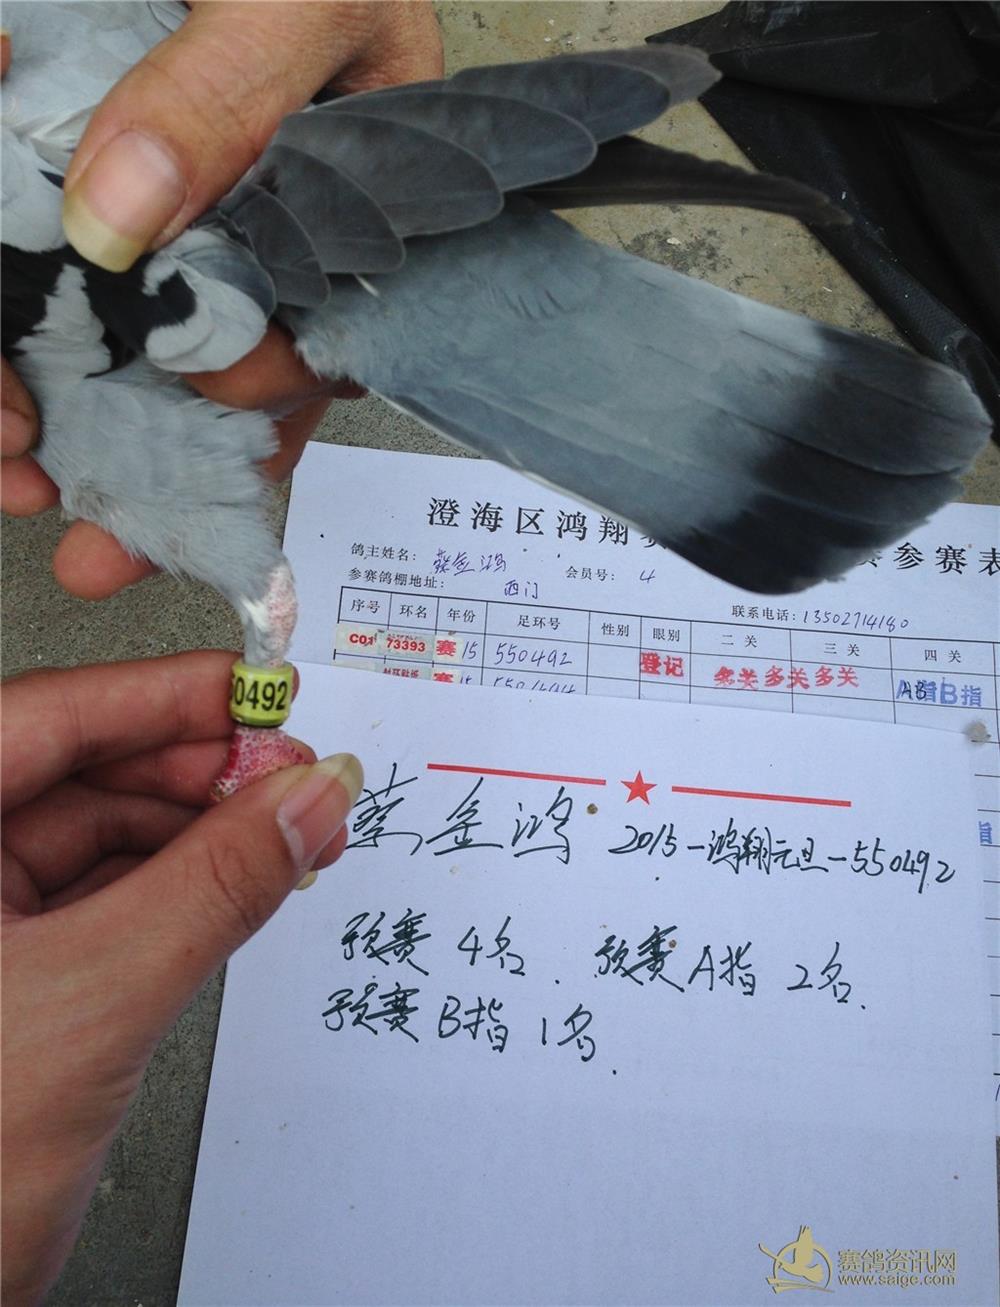 澄海区鸿翔赛
赛参赛表
鸽主姓名: 蔡金鸿 会员号: 4
参赛鸽棚地址: 西门 联系电话: 13502714180
序号 环名 年份 足环号 性别 眼别 二关 三关 四关
C01 73393 赛 15 550492 登记 多关多关多关 A指B指
赛 15
50492
蔡金鸿 2015-鸿翔元旦-550492
预赛 4名. 预赛A指 2名.
预赛B指 1名.
指
赛鸽资讯网
www.saige.com